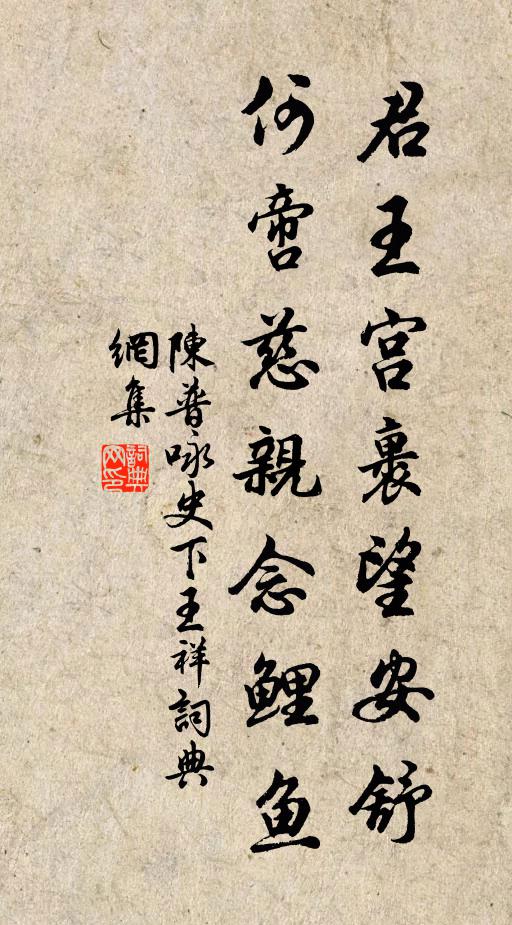 君王宫裏望安舒
何啻慈親念鯉鱼
陳普咏史下王祥詞典
網集
詞典
网印